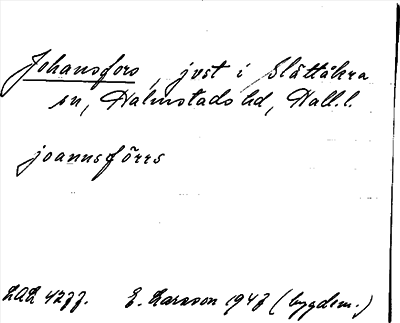 Johansfors, jvst i Slättåkra
sn, Halmstads hd, Hall. l.
joannsförrs
LAL 4277. E. Larsson 1947 (bygdem.)